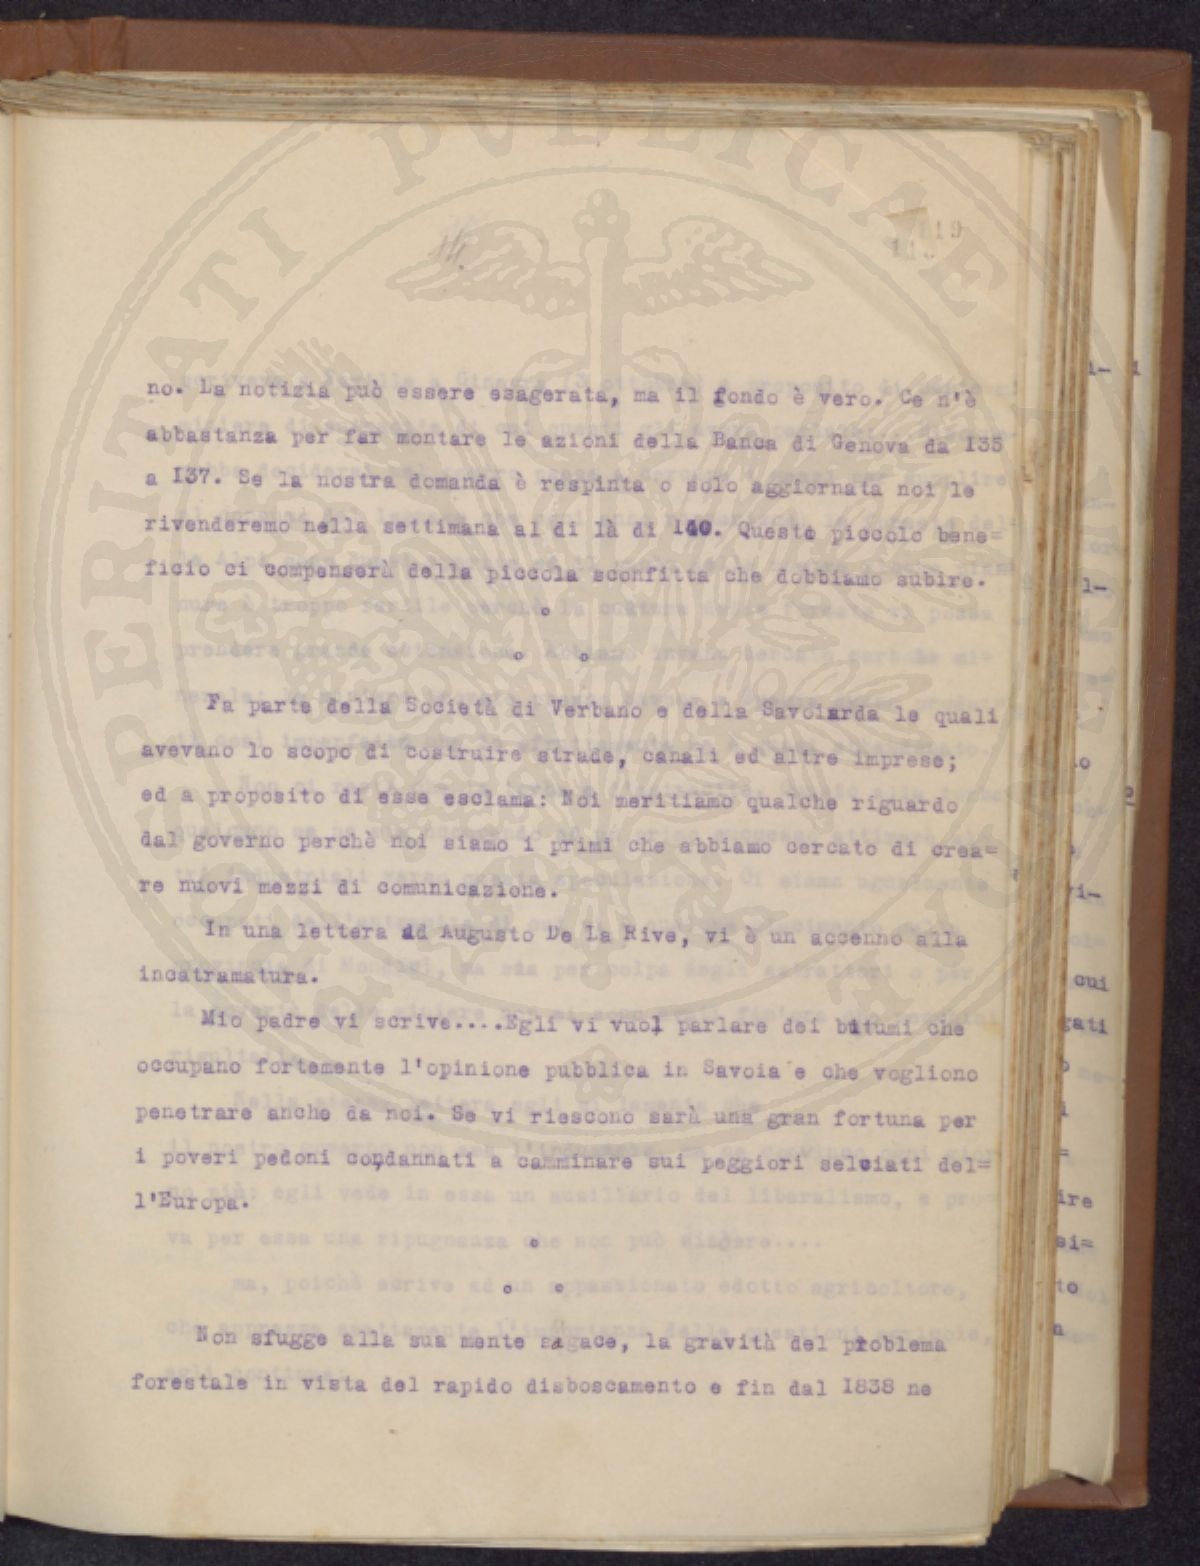 no. La notizia può essere esagerata, ma il fondo è vero. Ce n'è
abbastanza per far montare le azioni della Banca di Genova da I35
a I37. Se la nostra domanda è respinta o solo aggiornata noi le
rivenderemo nella settimana al di là di 140. Questo piccolo bene=
ficio ci compenserà della piccola sconfitta che dobbiamo subire.
°
° °
Fa parte della Società di Verbano e della Savoiarda le quali
avevano lo scopo di costruire strade, canali ed altre imprese;
ed a proposito di esse esclama: Noi meritiamo qualche riguardo
dal governo perchè noi siamo i primi che abbiamo cercato di crea=
re nuovi mezzi di comunicazione.
In una lettera ad Augusto De La Rive, vi è un accenno alla
incatramatura.
Mio padre vi scrive....Egli vi vuol parlare dei bitumi che
occupano fortemente l'opinione pubblica in Savoia e che vogliono
penetrare anche da noi. Se vi riescono sarà una gran fortuna per
i poveri pedoni condannati a camminare sui peggiori selciati del=
l'Europa.
°
° °
Non sfugge alla sua mente sagace, la gravità del problema
forestale in vista del rapido disboscamento e fin dal I838 ne